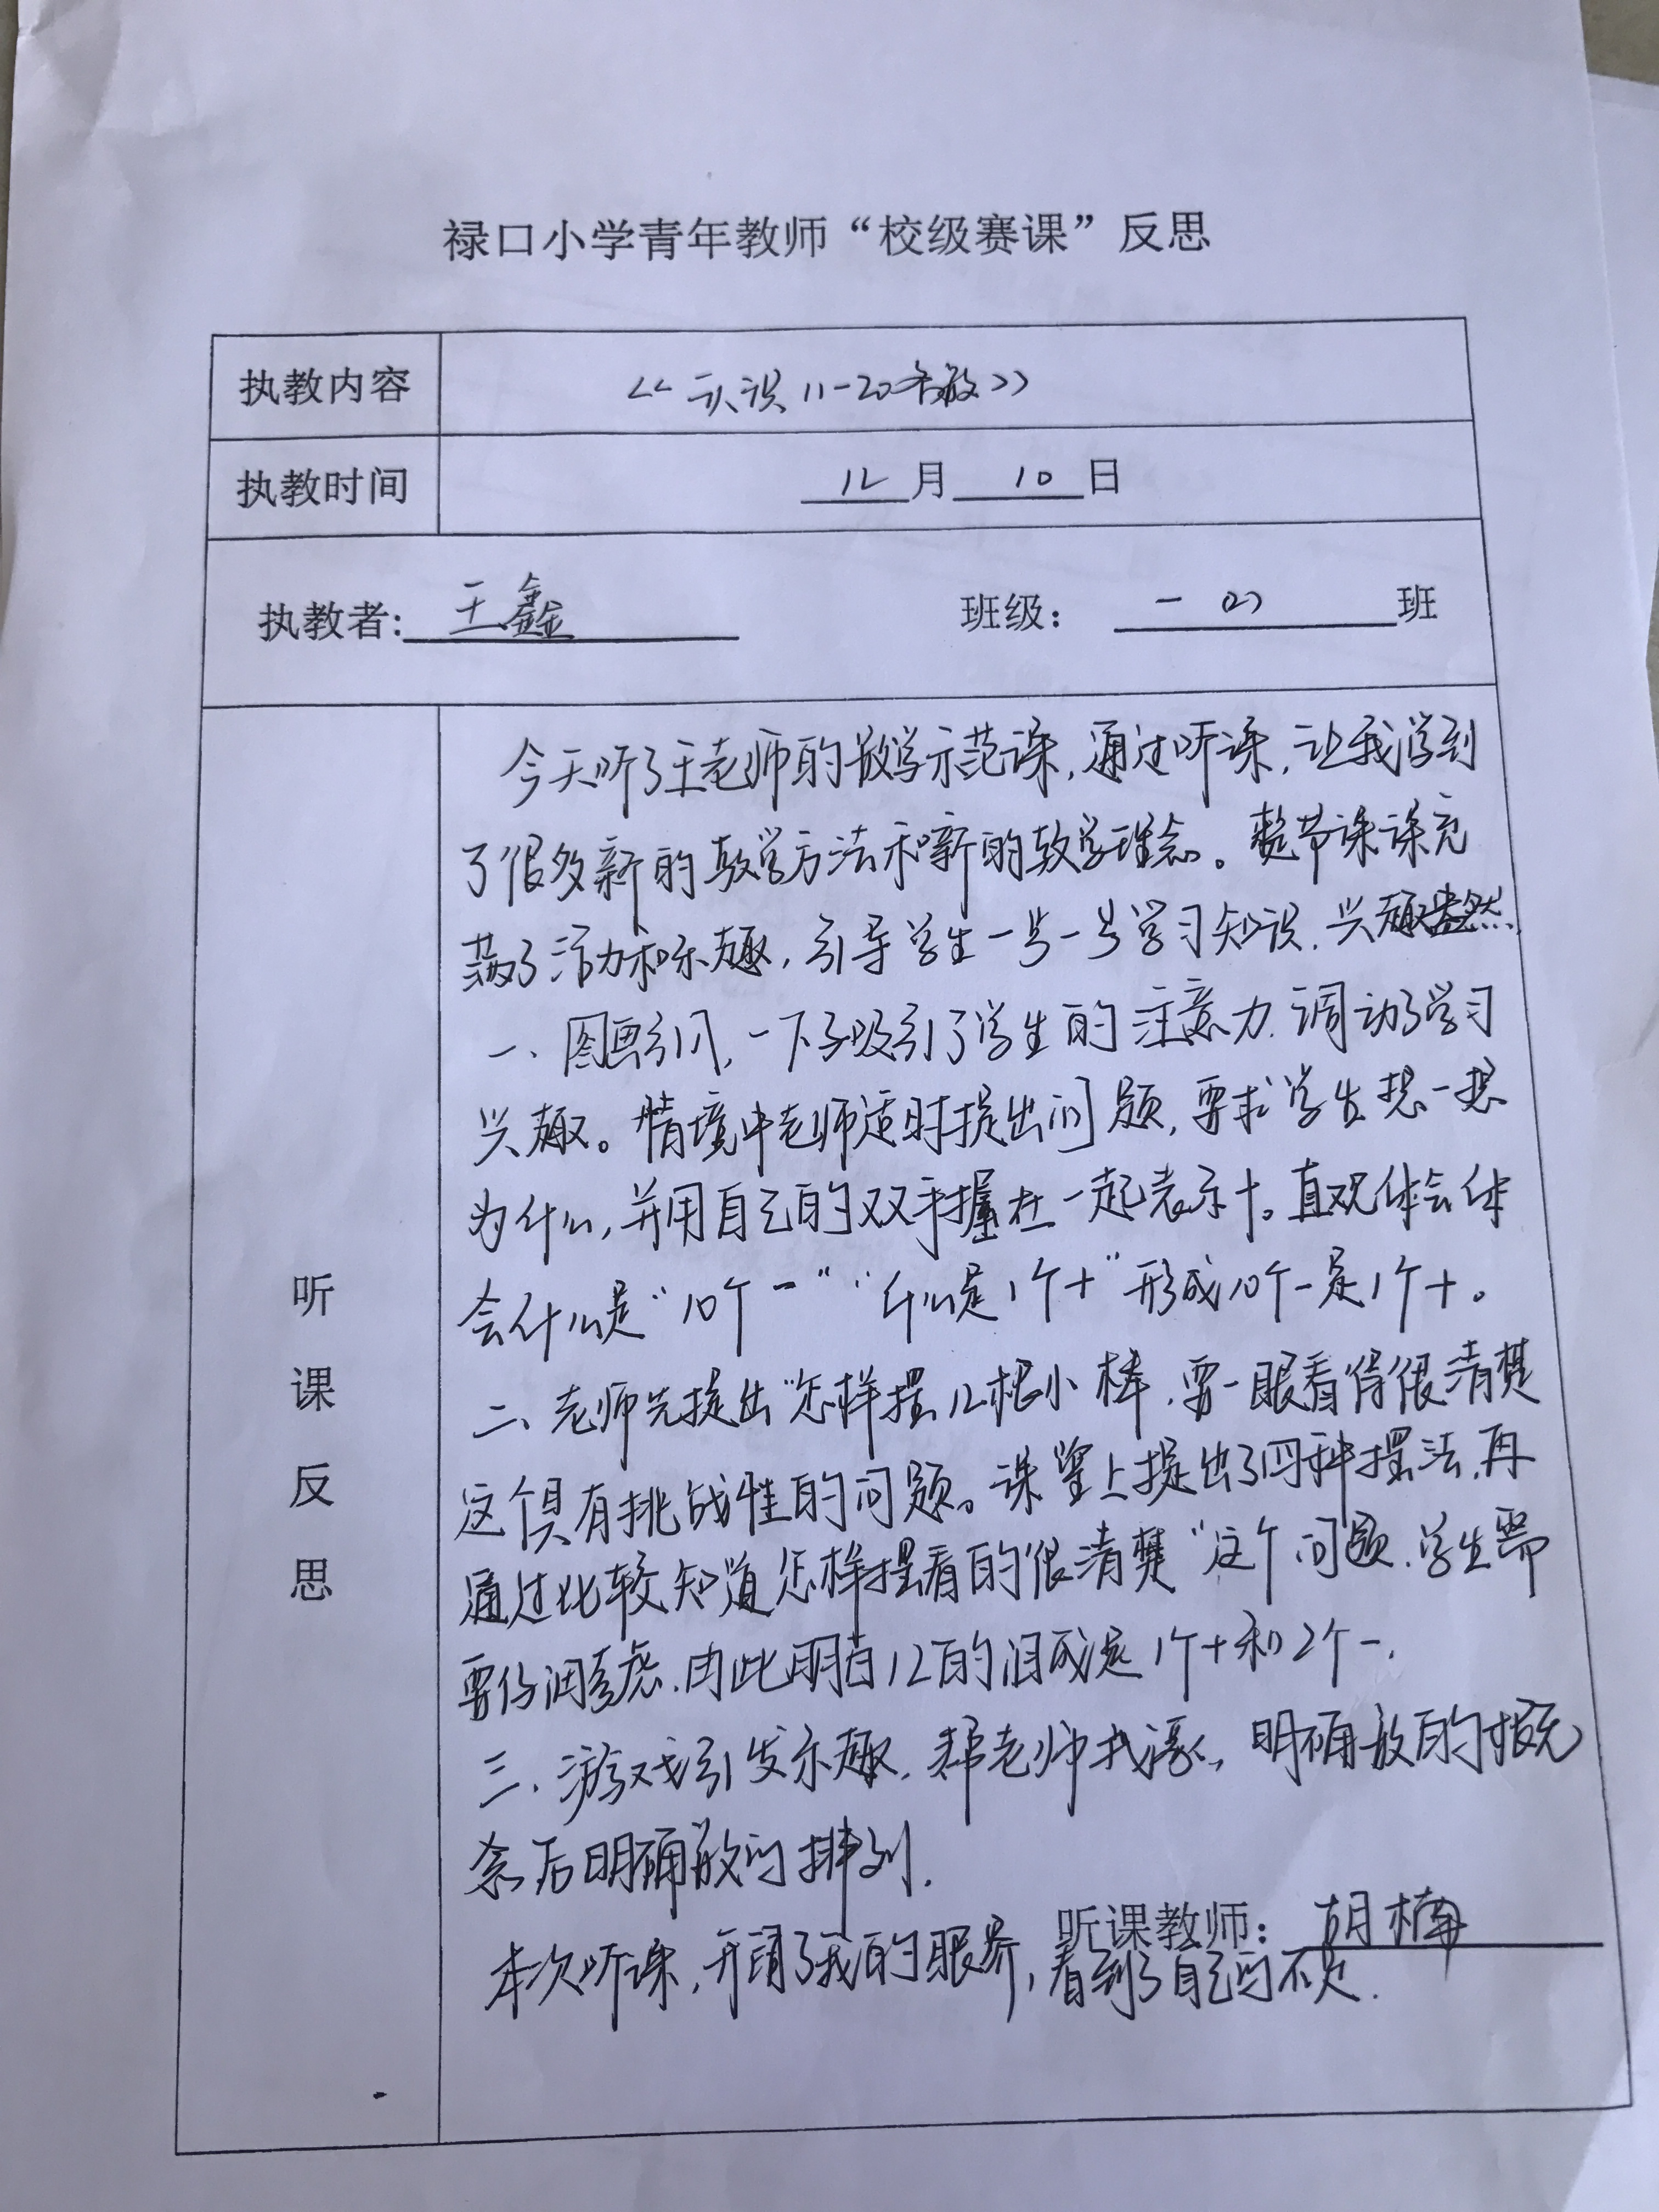 禄口小学青年教师“校级赛课”反思
执教内容
《认识11-20各数》
执教时间
12月10日
执教者: 王鑫 班级: 一 班
听课反思
今天听了王老师的数学示范课,通过听课,让我学到
了很多新的教学方法和新的教学理念。整节课课充
满了活力和乐趣,引导学生一步一步学习知识,兴趣盎然.
一、图画引入,一下子吸引了学生的注意力,调动了学习
兴趣。情境中老师适时提出问题,要求学生想一想
为什么,并用自己的双手握在一起表示十。直观体会体
会什么是“10个一”“什么是1个十”形成10个一是1个十。
二、老师先提出“怎样摆12根小棒,要一眼看得很清楚
这个具有挑战性的问题。课堂上提出了四种摆法,再
通过比较知道怎样摆看的很清楚”这个问题,学生需
要仔细考虑,由此明白12的组成是1个十和2个一.
三、游戏引发乐趣,帮老师找,明确数的概
念后明确数的排列.
听课教师: 胡楠
本次听课,开阔了我的眼界,看到了自己的不足.